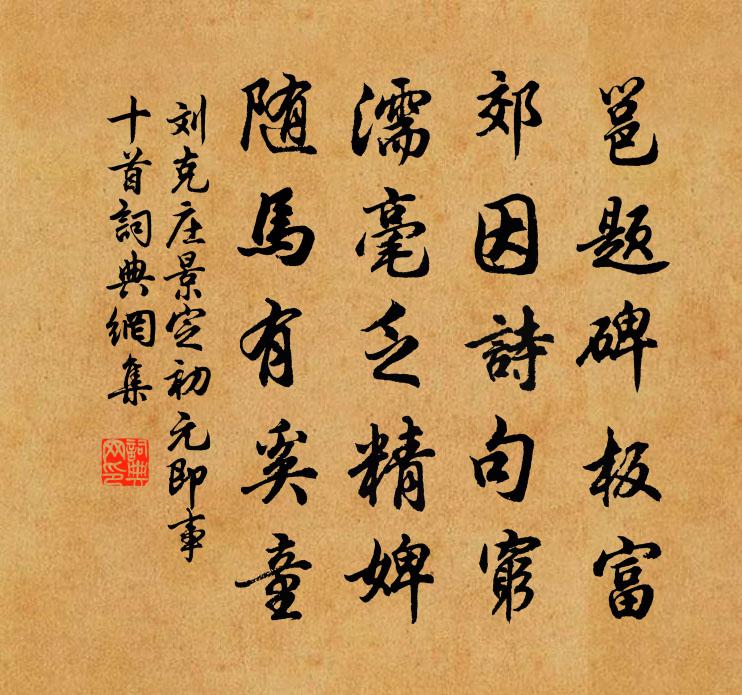 邕题碑板富
郊因詩句窮
濡毫乏精婢
随馬有奚童
刘克庄景定初元即事
十首詞典網集
詞典网印